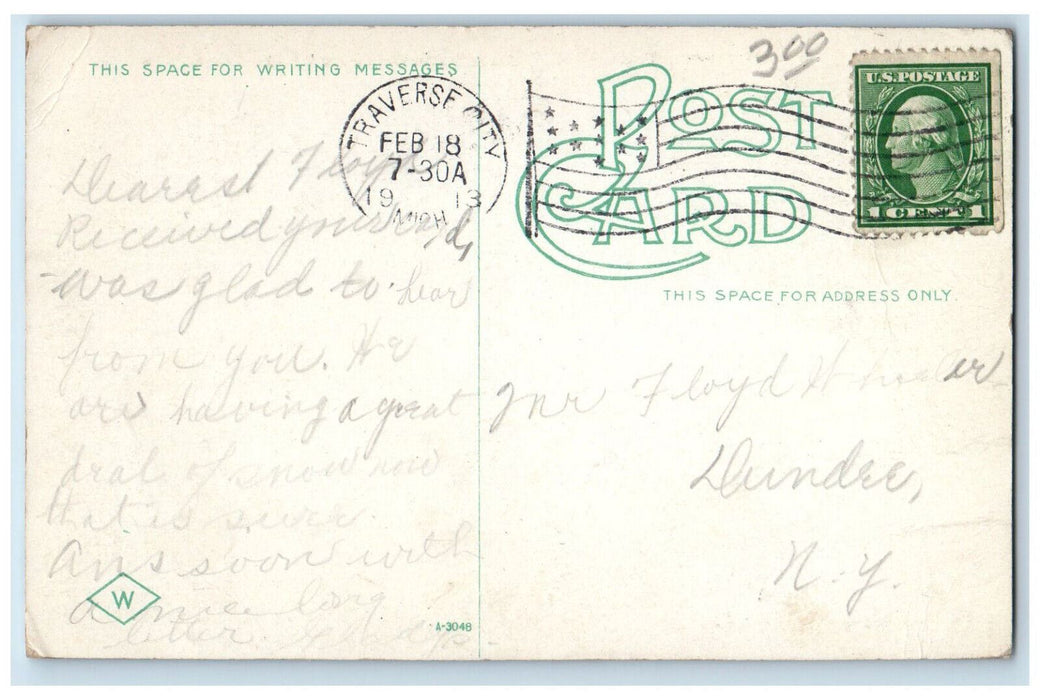 THIS SPACE FOR WRITING MESSAGES
Dearest Floyd
Received your card,
was glad to hear
from you. We
are having a great
deal of snow now
that is sure.
Ans soon with
a nice long
letter. Gladys.
W
A-3048
TRAVERSE CITY
FEB 18
7-30A
1913
MICH.
POST
CARD
3 00
U.S. POSTAGE
1 CENT 1
THIS SPACE FOR ADDRESS ONLY.
Mr Floyd Wheeler
Dundee,
N. Y.